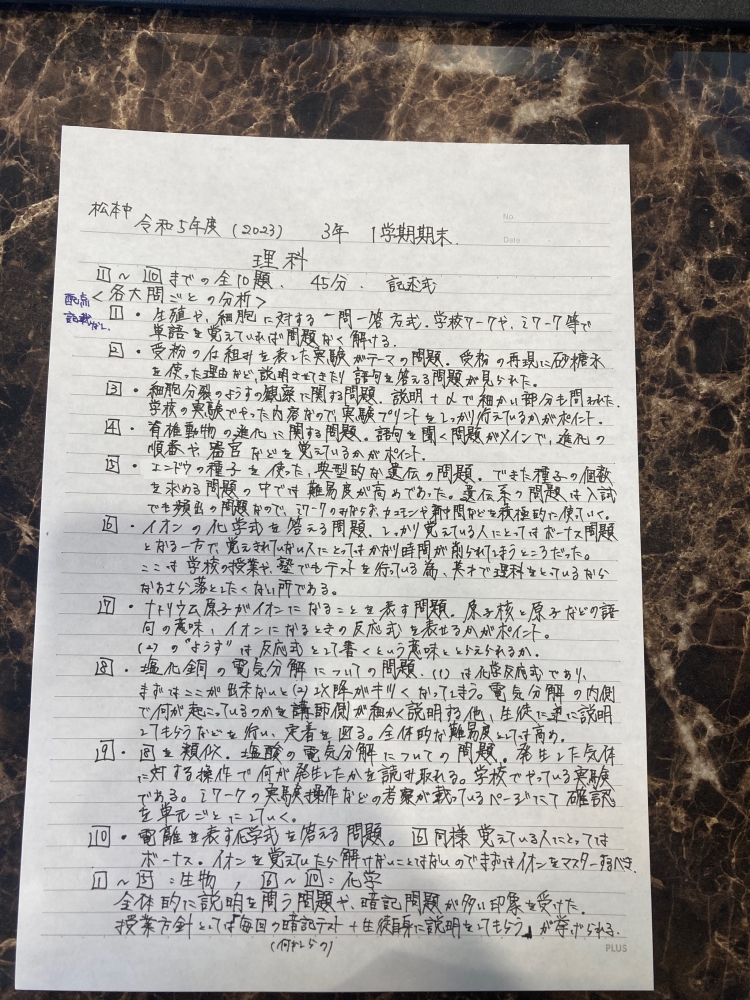 No.
松本中 令和5年度(2023) 3年 1学期期末.
Date
理科
1~10までの全10題. 45分. 記述式
配点記載なし.
<各大問ごとの分析>
1・生殖や、細胞に対する一問一答方式.学校ワークや、iワーク等で
単語を覚えていれば問題なく解ける.
2・受粉の仕組みを表した実験がテーマの問題. 受粉の再現に砂糖水
を使った理由など、説明させてきたり語句を答える問題が見られた。
3・細胞分裂のようすの観察に関する問題. 説明+αで細かい部分も問われた.
学校の実験でやった内容なので実験プリントをしっかり行えているかがポイント.
4・脊椎動物の進化に関する問題。語句を聞く問題がメインで、進化の
順番や器官などを覚えているかがポイント.
5・エンドウの種子を使った、典型的な遺伝の問題. できた種子の個数
を求める問題の中では難易度が高めであった。遺伝系の問題は入試
でも頻出の問題なので、iワークのみならず、カコモンや新中問などを積極的に使っていく。
6・イオンの化学式を答える問題. しっかり覚えている人にとってはボーナス問題
となる一方で、覚えきれていない人にとってはかなり時間が削られてしまうところだった。
ここは学校の授業や、塾でもテストを行っている為、英才で理科をとっているなら
なおさら落としたくない所である。
7・ナトリウム原子がイオンになることを表す問題. 原子核と原子などの語
句の意味、イオンになるときの反応式を表せるかがポイント.
(2)の"ようす"は反応式として書くという意味ととらえられるか.
8・塩化銅の電気分解についての問題.(1)は化学反応式であり、
まずはここが出来ないと(2)以降がキツくなってしまう。電気分解の内側
で何が起こっているのかを講師側が細かく説明する他、生徒に逆に説明
してもらうなどを行い、定着を図る。全体的な難易度としては高め.
9・図を類似.塩酸の電気分解についての問題。発生した気体
に対する操作で何が発生したかを読み取れる。学校でやっている実験
である。iワークの実験操作などの考察が載っているページにて確認
を単元ごとにしていく.
10・電離を表す化学式を答える問題。6同様覚えている人にとっては
ボーナス.イオンを覚えていたら解けないことはないのでまずはイオンをマスターするべき.
1~5:生物, 6~10:化学
全体的に説明を問う問題や、暗記問題が多い印象を受けた.
授業方針としては「毎回の暗記テスト+生徒自身に説明をしてもらう」が挙げられる.
(何かしらの)
PLUS